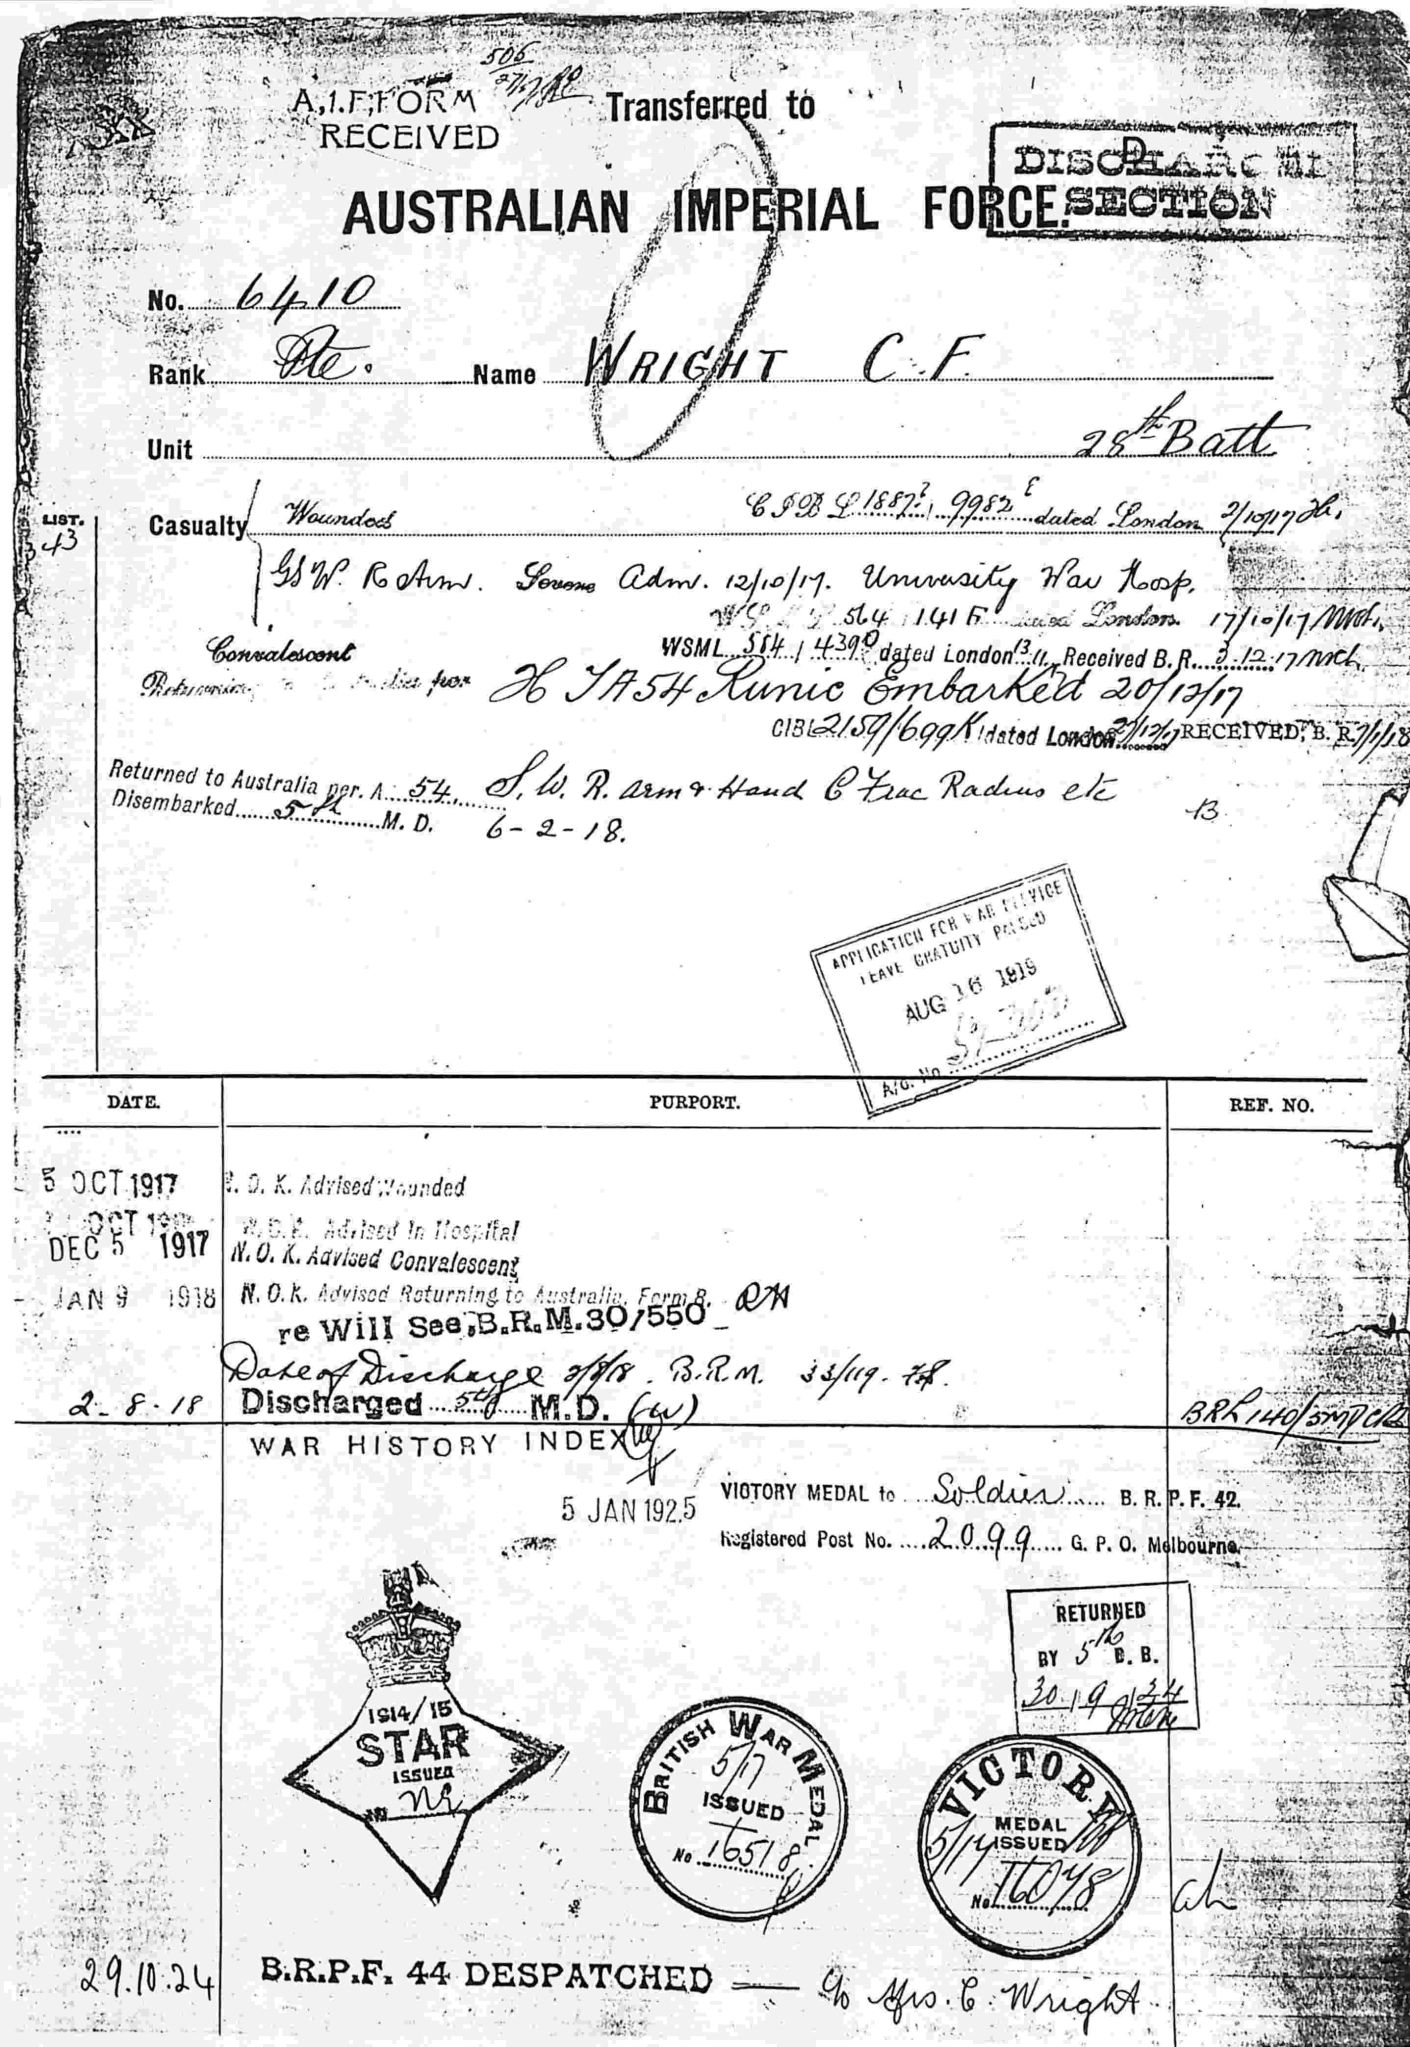 506
A.I.F. FORM
RECEIVED
Transferred to
DISCHARGED
SECTION
AUSTRALIAN IMPERIAL FORCE.
No. 6410
Rank Pte. Name WRIGHT C. F.
Unit 28th Batt
LIST.
343
Casualty Wounded dated London 2/10/17
GSW. R Arm. Severe Adm. 12/10/17. University War Hosp.
564 London 17/10/17
WSML 584 dated London Received B. R. 3.12.17
Convalescent
Returning per H T A54 Runic Embarked 20/12/17
CIBL 2159/699K dated London 27/12/17 RECEIVED, B. R. 7/1/18
Returned to Australia per. A. 54. S. W. R. arm & Hand C Frac Radius etc
Disembarked 5th M. D. 6-2-18.
B
APPLICATION FOR WAR SERVICE
LEAVE GRATUITY PASSED
AUG 16 1919
A/G. No
DATE. PURPORT. REF. NO.
5 OCT 1917 N. O. K. Advised Wounded
OCT N. O. K. Advised In Hospital
DEC 5 1917 N. O. K. Advised Convalescent
JAN 9 1918 N. O. K. Advised Returning to Australia, Form B.
re Will See, B.R.M. 30/550
Date of Discharge 2/8/18. B.R.M. 33/119.
2-8-18 Discharged 5th M.D. (W)
WAR HISTORY INDEX
5 JAN 1925
VICTORY MEDAL to Soldier B. R. P. F. 42.
Registered Post No. 2099 G. P. O. Melbourne.
RETURNED
BY 5th B. B.
30 9
1914/15
STAR
ISSUED
No
BRITISH WAR MEDAL
5/17
ISSUED
No 16518
VICTORY
MEDAL
ISSUED
5/17
No 16078
29.10.24 B.R.P.F. 44 DESPATCHED — c/o Mrs. C. Wright